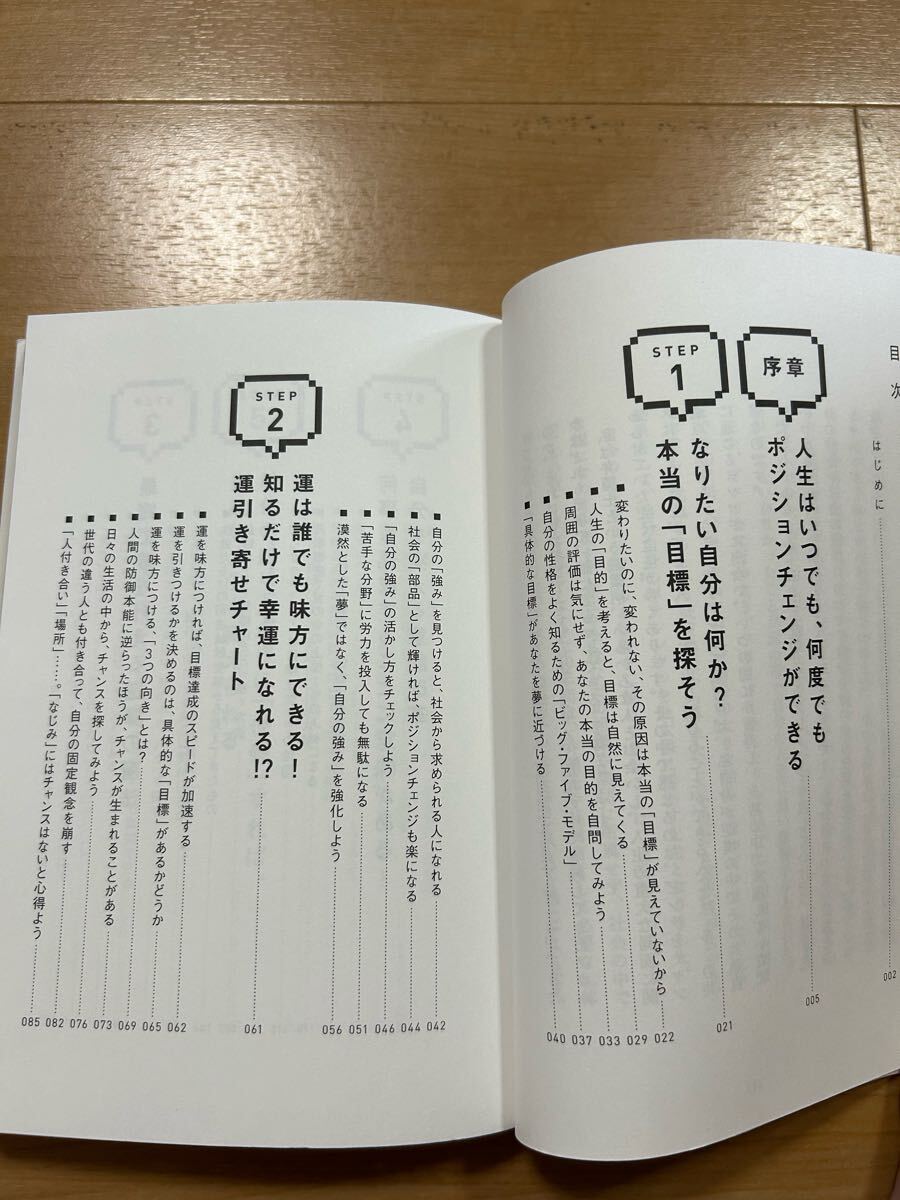 目次
はじめに 002
序章
人生はいつでも、何度でも
ポジションチェンジができる 005
STEP
1
なりたい自分は何か？
本当の「目標」を探そう 021
■ 変わりたいのに、変われない、その原因は本当の「目標」が見えていないから 022
■ 人生の「目的」を考えると、目標は自然に見えてくる 029
■ 周囲の評価は気にせず、あなたの本当の目的を自問してみよう 033
■ 自分の性格をよく知るための「ビッグ・ファイブ・モデル」 037
■ 「具体的な目標」があなたを夢に近づける 040
■ 自分の「強み」を見つけると、社会から求められる人になれる 042
■ 社会の「部品」として輝ければ、ポジションチェンジも楽になる 044
■ 「自分の強み」の活かし方をチェックしよう 046
■ 「苦手な分野」に労力を投入しても無駄になる 051
■ 漠然とした「夢」ではなく、「自分の強み」を強化しよう 056
STEP
2
運は誰でも味方にできる！
知るだけで幸運になれる!?
運引き寄せチャート 061
■ 運を味方につければ、目標達成のスピードが加速する 062
■ 運を引きつけるかを決めるのは、具体的な「目標」があるかどうか 065
■ 運を味方につける、「3つの向き」とは？ 069
■ 人間の防御本能に逆らったほうが、チャンスが生まれることがある 073
■ 日々の生活の中から、チャンスを探してみよう 076
■ 世代の違う人とも付き合って、自分の固定観念を崩す 082
■ 「人付き合い」「場所」……。「なじみ」にはチャンスはないと心得よう 085